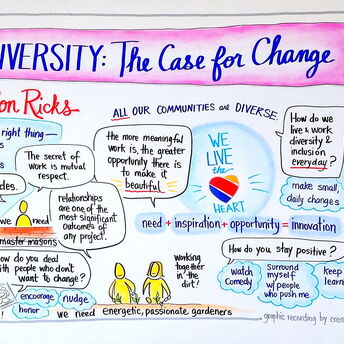 IVERSITY: The Case for Change
on Ricks
right thing –
The secret of
work is mutual
respect.
des.
need
master masons
relationships
are one of the
most significant
outcomes of
any project.
The more meaningful
work is, the greater
opportunity there is
to make it
beautiful.
ALL OUR COMMUNITIES are DIVERSE
WE
LIVE
the
HEART
need + inspiration + opportunity = innovation
How do you
live & work
diversity &
inclusion
everyday?
make small,
daily changes
How do you deal
with people who don't
want to change?
encourage
nudge
honor
we need energetic, passionate gardeners
working
together
in
the dirt!
How do you stay positive?
watch
Comedy
surround
myself
w/ people
who push me
Keep
learn
graphic recording by crea